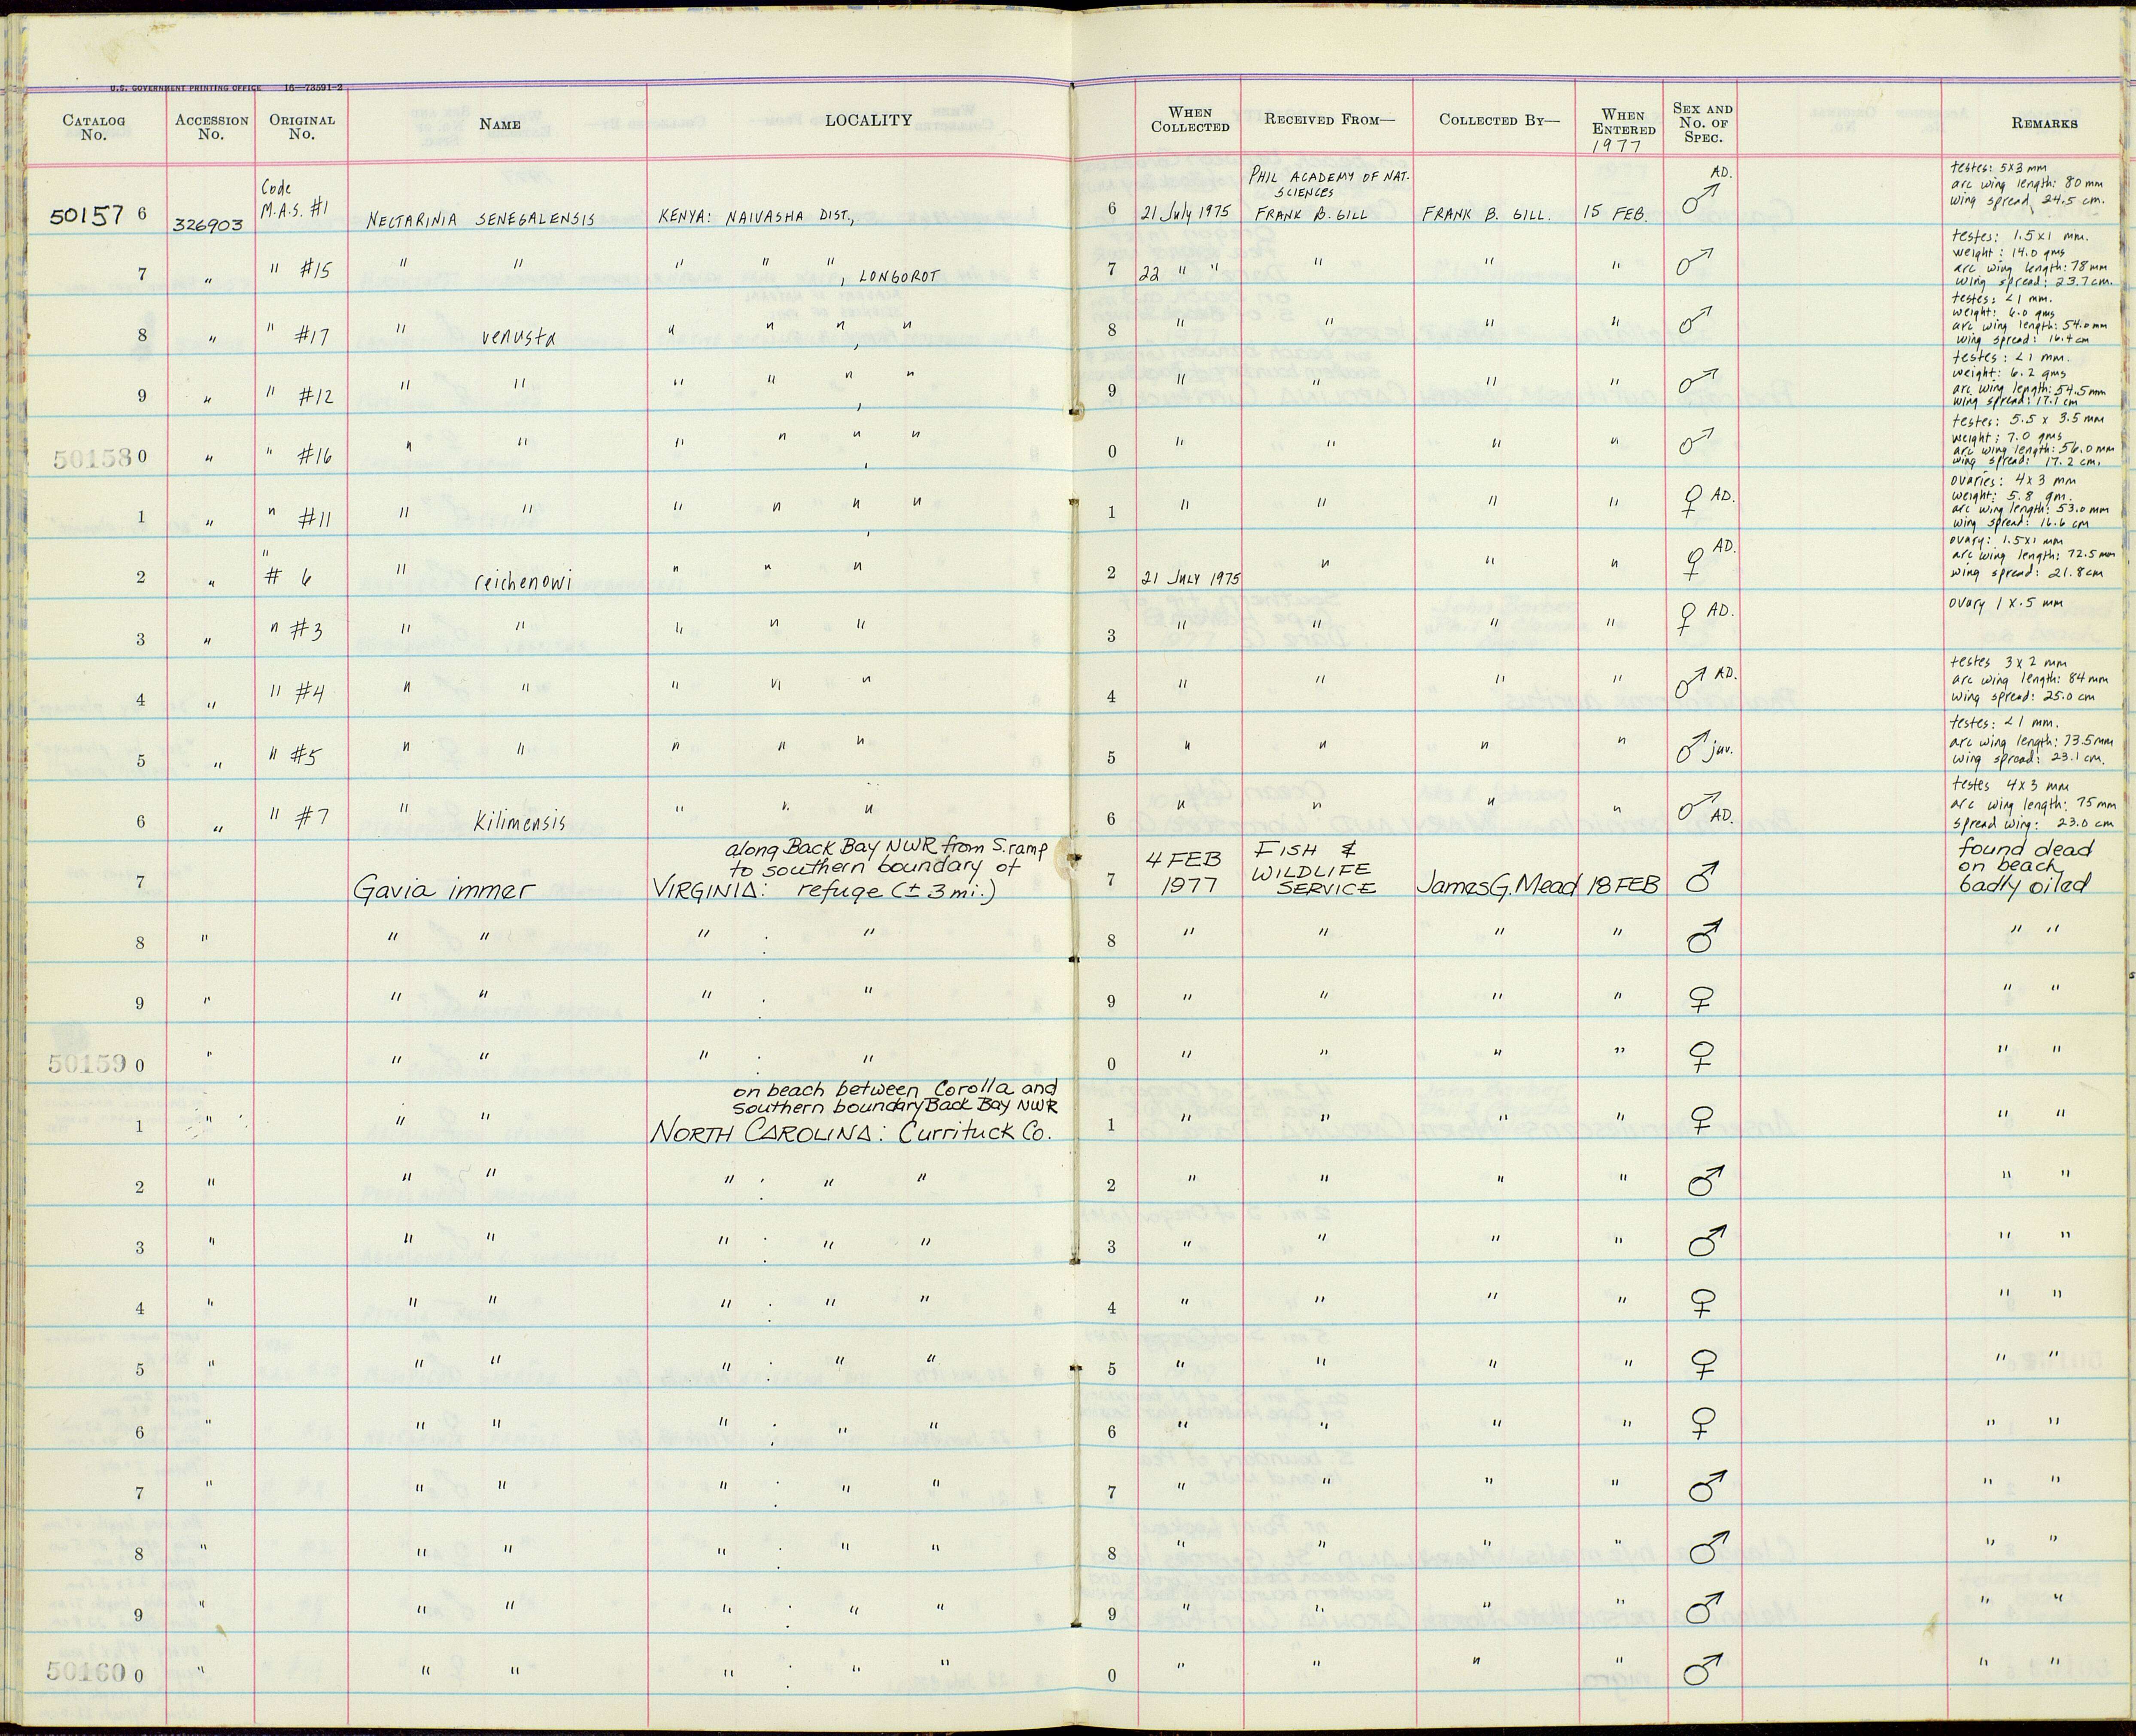 U.S. GOVERNMENT PRINTING OFFICE 16—73591-2
CATALOG No. ACCESSION No. ORIGINAL No. NAME LOCALITY WHEN COLLECTED RECEIVED FROM— COLLECTED BY— WHEN ENTERED 1977 SEX AND No. OF SPEC. REMARKS
50157 6 326903 Code M.A.S. #1 NECTARINIA SENEGALENSIS KENYA: NAIVASHA DIST., 6 21 July 1975 PHIL ACADEMY OF NAT. SCIENCES FRANK B. GILL FRANK B. GILL. 15 FEB. ♂ AD. testes: 5x3 mm
arc wing length: 80 mm
wing spread, 24.5 cm.
7 " " #15 " " " " " , LONGOROT 7 22 " " " " " ♂ testes: 1.5x1 mm.
weight: 14.0 gms
arc wing length: 78 mm
wing spread: 23.7 cm.
8 " " #17 " venusta " " " , " 8 " " " " ♂ testes: <1 mm.
weight: 6.0 gms
arc wing length: 54.0 mm
wing spread: 16.4 cm
9 " " #12 " " " " " , " 9 " " " " ♂ testes: <1 mm.
weight: 6.2 gms
arc wing length: 54.5 mm
wing spread: 17.1 cm
50158 0 " " #16 " " " " " , " 0 " " " " ♂ testes: 5.5 x 3.5 mm
weight: 7.0 gms
arc wing length: 56.0 mm
wing spread: 17.2 cm.
1 " " #11 " " " " " , " 1 " " " " ♀ AD. ovaries: 4x3 mm
weight: 5.8 gm.
arc wing length: 53.0 mm
wing spread: 16.6 cm
2 " " # 6 " reichenowi " " " 2 21 JULY 1975 " " " ♀ AD. ovary: 1.5x1 mm
arc wing length: 72.5 mm
wing spread: 21.8 cm
3 " " #3 " " " " " 3 " " " " ♀ AD. ovary 1 x .5 mm
4 " " #4 " " " " " 4 " " " " ♂ AD. testes 3x2 mm
arc wing length: 84 mm
wing spread: 25.0 cm
5 " " #5 " " " " " 5 " " " " ♂ juv. testes: <1 mm.
arc wing length: 73.5 mm
wing spread: 23.1 cm.
6 " " #7 " Kilimensis " " " 6 " " " " ♂ AD. testes 4x3 mm
arc wing length: 75 mm
spread wing: 23.0 cm
7 Gavia immer VIRGINIA: along Back Bay NWR from S. ramp to southern boundary of refuge (± 3 mi.) 7 4 FEB 1977 FISH & WILDLIFE SERVICE James G. Mead 18 FEB ♂ found dead on beach badly oiled
8 " " " " : " 8 " " " " ♂ " "
9 " " " " : " 9 " " " " ♀ " "
50159 0 " " " " : " 0 " " " " ♀ " "
1 " " " on beach between Corolla and southern boundary Back Bay NWR NORTH CAROLINA: Currituck Co. 1 " " " " ♀ " "
2 " " " " : " " 2 " " " " ♂ " "
3 " " " " : " " 3 " " " " ♂ " "
4 " " " " : " " 4 " " " " ♀ " "
5 " " " " : " " 5 " " " " ♀ " "
6 " " " " : " " 6 " " " " ♀ " "
7 " " " " : " " 7 " " " " ♂ " "
8 " " " " : " " 8 " " " " ♂ " "
9 " " " " : " " 9 " " " " ♂ " "
50160 0 " " " " : " " 0 " " " " ♂ " "